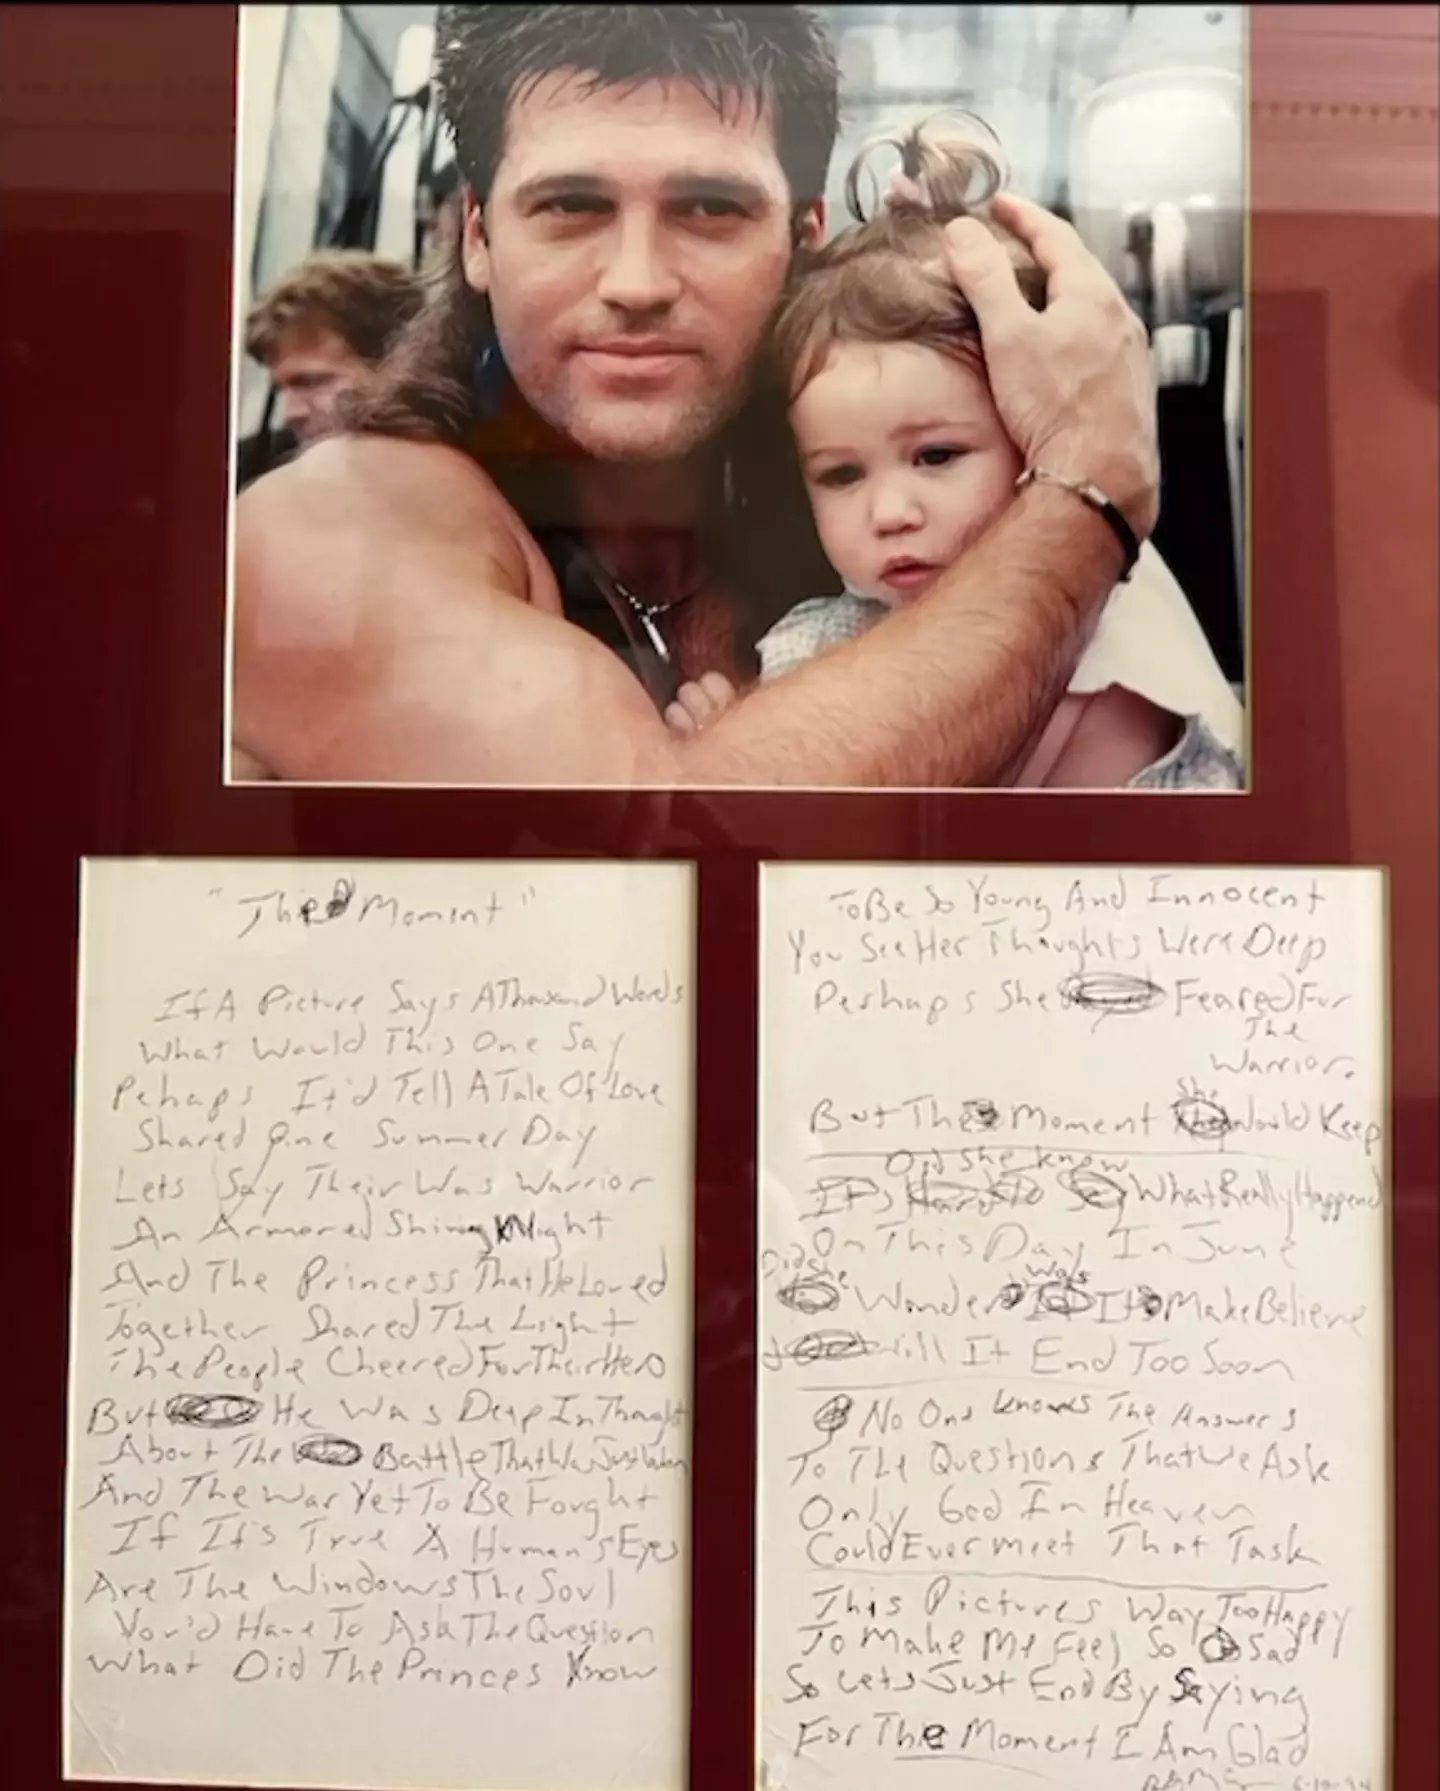 "The Moment"
If A Picture Says A Thousand Words
What Would This One Say
Pehaps It'd Tell A Tale Of Love
Shared One Summer Day
Lets Say Their Was Warrior
An Armored Shining Knight
And The Princess That He Loved
Together Shared The Light
The People Cheered For Their Hero
But He Was Deep In Thought
About The Battle That Was Just
And The War Yet To Be Fought
If It's True A Human's Eyes
Are The Windows The Soul
You'd Have To Ask The Question
What Did The Princes Know
To Be So Young And Innocent
You See Her Thoughts Were Deep
Perhaps She Feared For
The
Warrior.
But The Moment She Would Keep
Did She Know
What Really Happened
On This Day In June
Did She Wonder Was It Make Believe
Will It End Too Soon
No One Knows The Answers
To The Questions That We Ask
Only God In Heaven
Could Ever Meet That Task
This Pictures Way Too Happy
To Make Me Feel So Sad
So Lets Just End By Saying
For The Moment I Am Glad